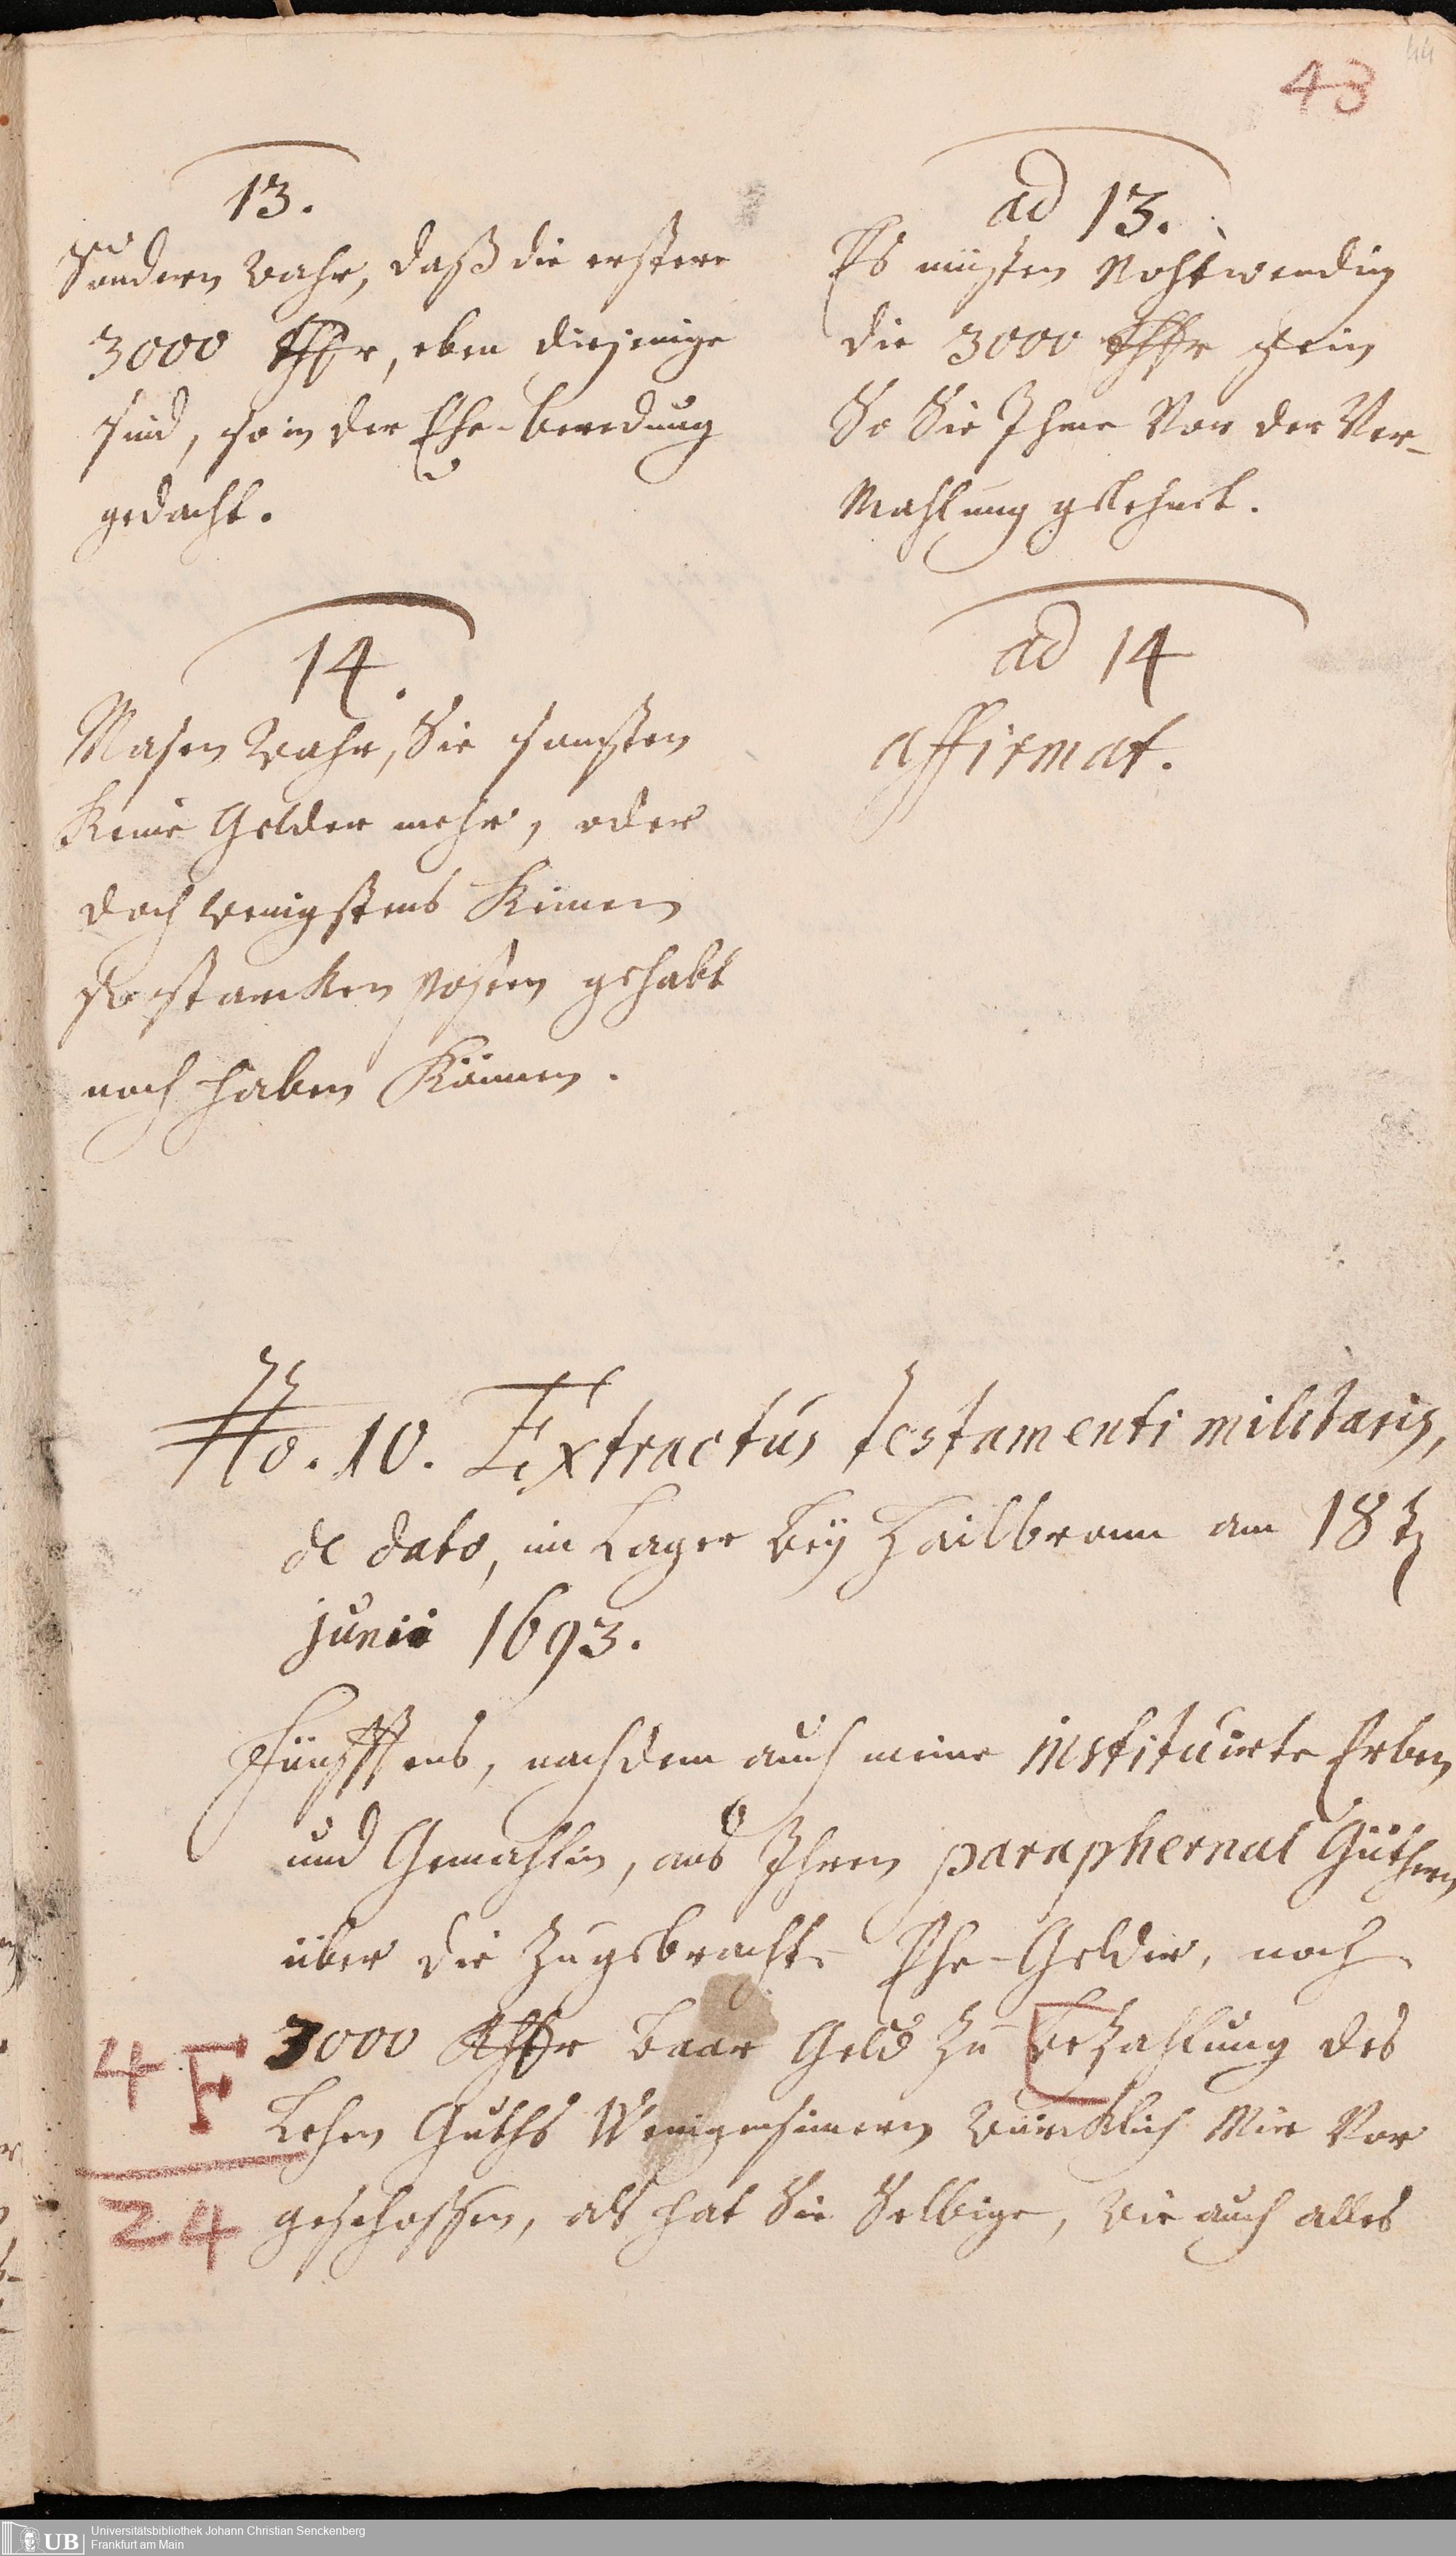 44
43
13.
Sondern wahr, daß die erstere
3000 Thlr, eben diejenige
sind, so in der Ehe-beredung
gedacht.
ad 13.
Es müsten Nohtwendig
die 3000 Thlr sein
So Sie Ihme Vor der Ver-
Mahlung gelehnet.
14.
Masen wahr, Sie sonsten
Keine Gelder mehr, oder
doch wenigstens Keinen
so starcken posten gehabt
noch haben Können.
ad 14
affirmat.
No. 10. Extractus testamenti militaris,
de dato, im Lager bey Hailbronn am 18
junii 1693.
Fünfftens, nachdem auch meine instituirte Erben
und Gemahlin, aus Ihren paraphernal Güthern
über die Zugebracht Ehe-Gelder, noch
3000 Thlr baar Geld zu bezahlung des
Lehen Guths würcklich Mir Vor
geschossen, als hat Sie Selbige, wie auch alles
4 F
24
UB
Universitätsbibliothek Johann Christian Senckenberg
Frankfurt am Main